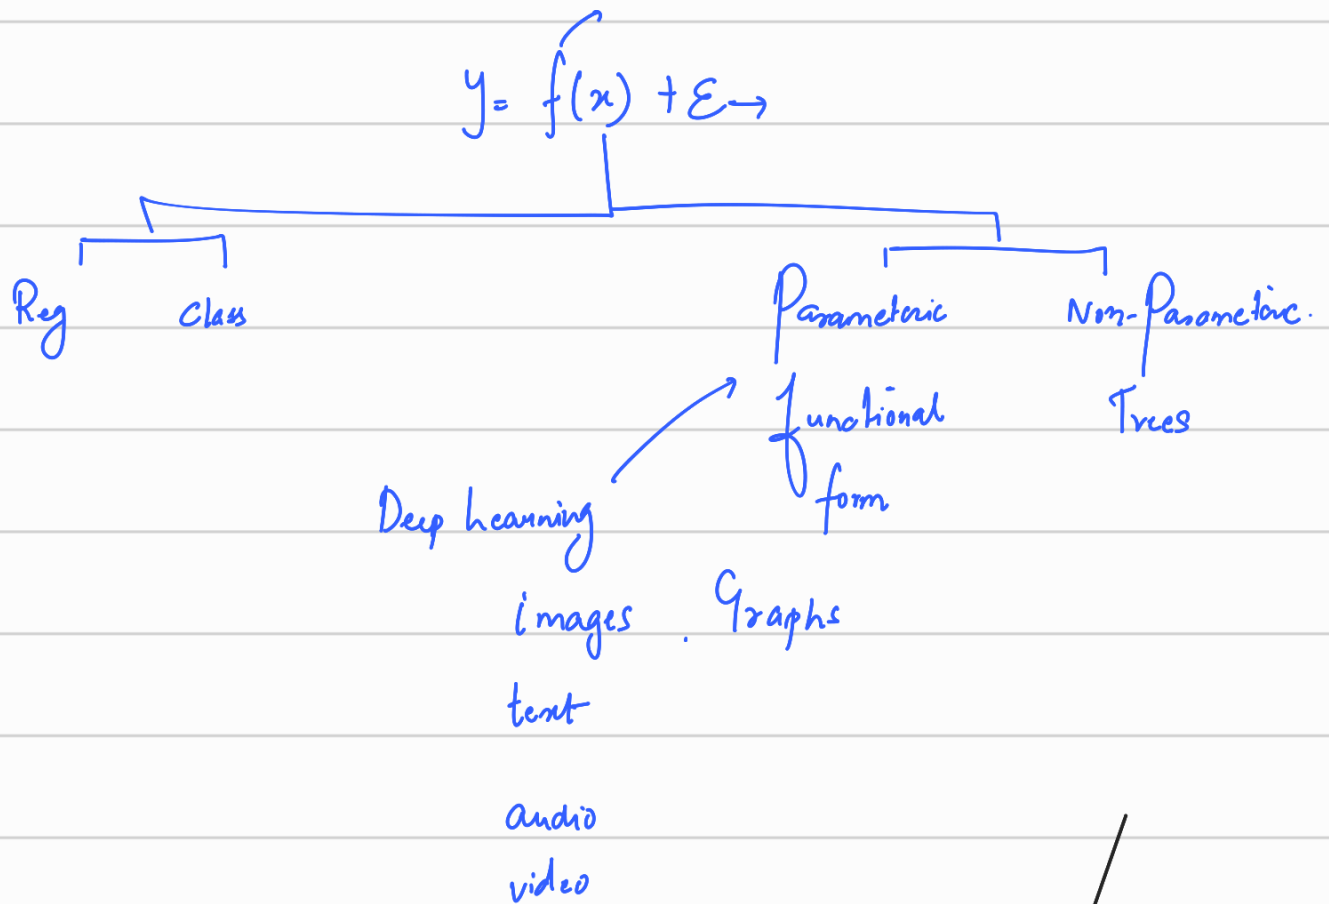 y = f(x) + ε →
Reg Class Parametric Non-Parametric.
functional Trees
form
Deep Learning
images . Graphs
text
audio
video